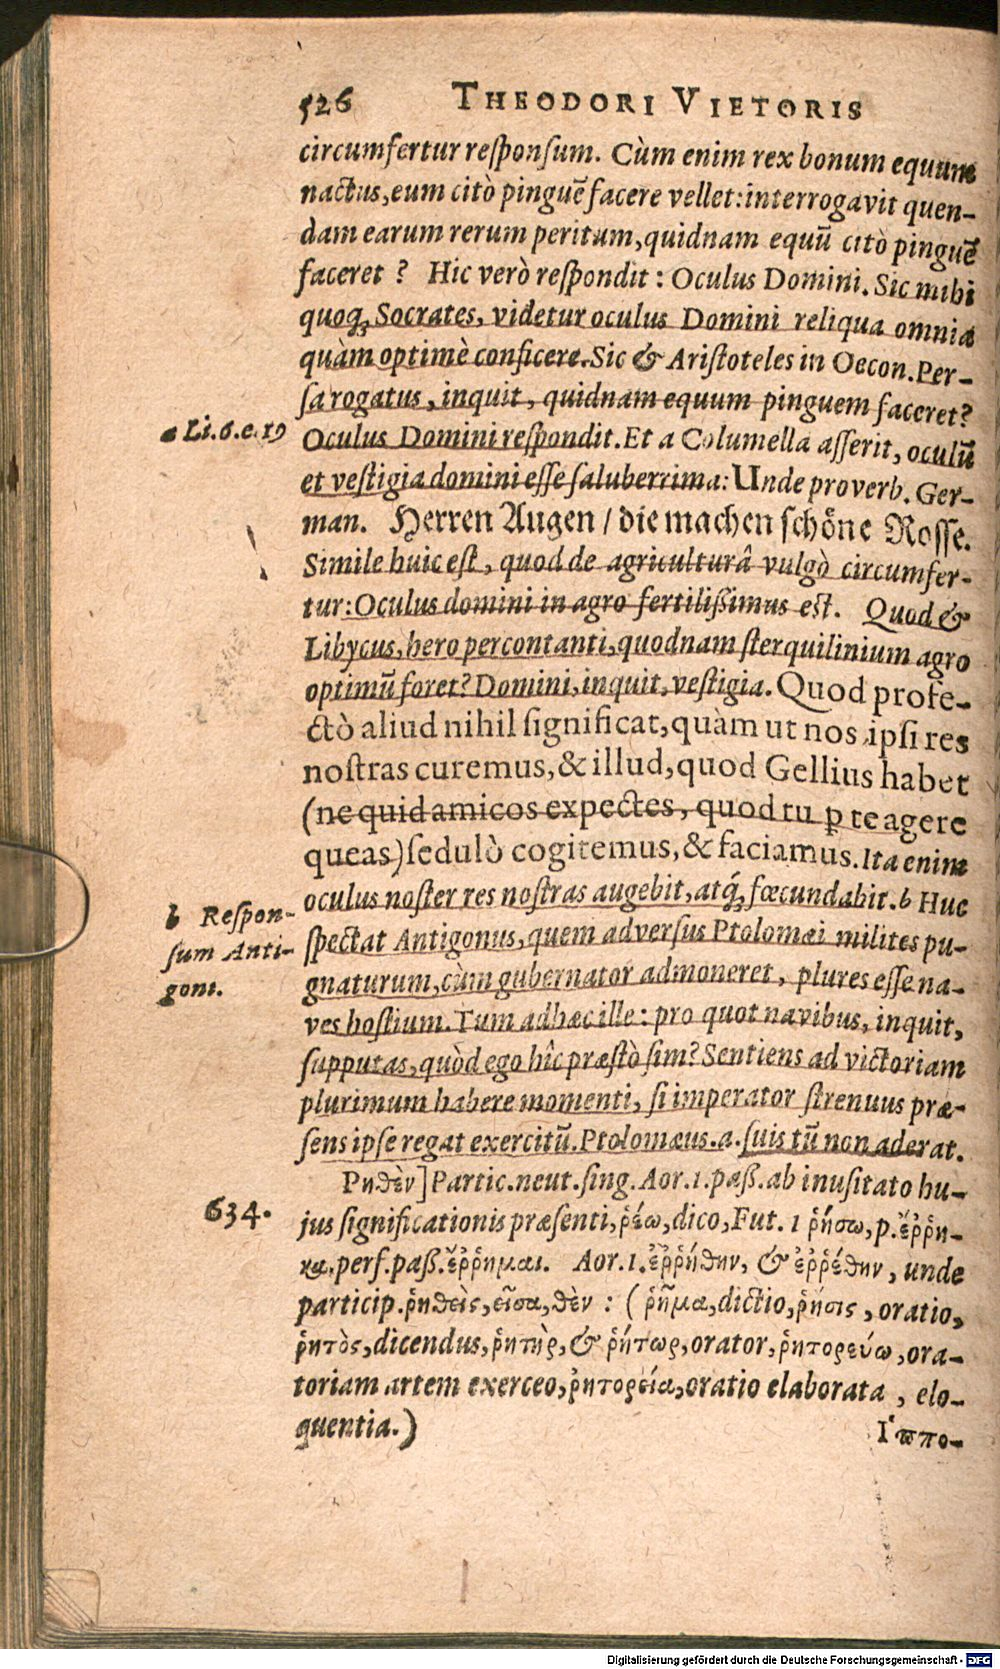 526 THEODORI VIETORIS
circumfertur responsum. Cùm enim rex bonum equum
nactus, eum citò pinguē facere vellet: interrogavit quen-
dam earum rerum peritum, quidnam equū citò pinguē
faceret ? Hic verò respondit : Oculus Domini. Sic mihi
quoq;, Socrates, videtur oculus Domini reliqua omnia
quàm optimè conficere. Sic & Aristoteles in Oecon. Per-
sa rogatus, inquit, quidnam equum pinguem faceret?
a Li. 6. e. 19
Oculus Domini respondit. Et a Columella asserit, oculū
et vestigia domini esse saluberrima: Unde proverb. Ger-
man. Herren Augen / die machen schöne Rosse.
Simile huic est, quod de agriculturâ vulgò circumfer-
tur: Oculus domini in agro fertilissimus est. Quod &
Libycus, hero percontanti, quodnam sterquilinium agro
optimū foret? Domini, inquit, vestigia. Quod profe-
ctò aliud nihil significat, quàm ut nos ipsi res
nostras curemus, & illud, quod Gellius habet
(ne quid amicos expectes, quod tu ꝑ te agere
queas) sedulò cogitemus, & faciamus. Ita enim
oculus noster res nostras augebit, atq́; fœcundabit. b Huc
b Respon-
sum Anti-
goni.
spectat Antigonus, quem adversus Ptolomæi milites pu-
gnaturum, cùm gubernator admoneret, plures esse na-
ves hostium. Tum adhæc ille : pro quot navibus, inquit,
supputas, quòd ego hîc præstò sim? Sentiens ad victoriam
plurimum habere momenti, si imperator strenuus præ-
sens ipse regat exercitū. Ptolomæus. a. suis tū non aderat.
Ρηθὲν] Partic. neut. sing. Aor. 1. pass. ab inusitato hu-
634.
jus significationis præsenti, ῥέω, dico, Fut. 1 ῥήσω, p. ἔῤῥη-
κα. perf. pass. ἔῤῥημαι. Aor. 1. ἐῤῥήθην, & ἐῤῥέθην, unde
particip. ῥηθεὶς, εῖσα, θὲν : ( ῥῆμα, dictio, ῥῆσις, oratio,
ῥητὸς, dicendus, ῥητὴρ, & ῥήτωρ, orator, ῥητορεύω, ora-
toriam artem exerceo, ῥητορεία, oratio elaborata, elo-
quentia. )
Ι῾ϖπο-
Digitalisierung gefördert durch die Deutsche Forschungsgemeinschaft - DFG